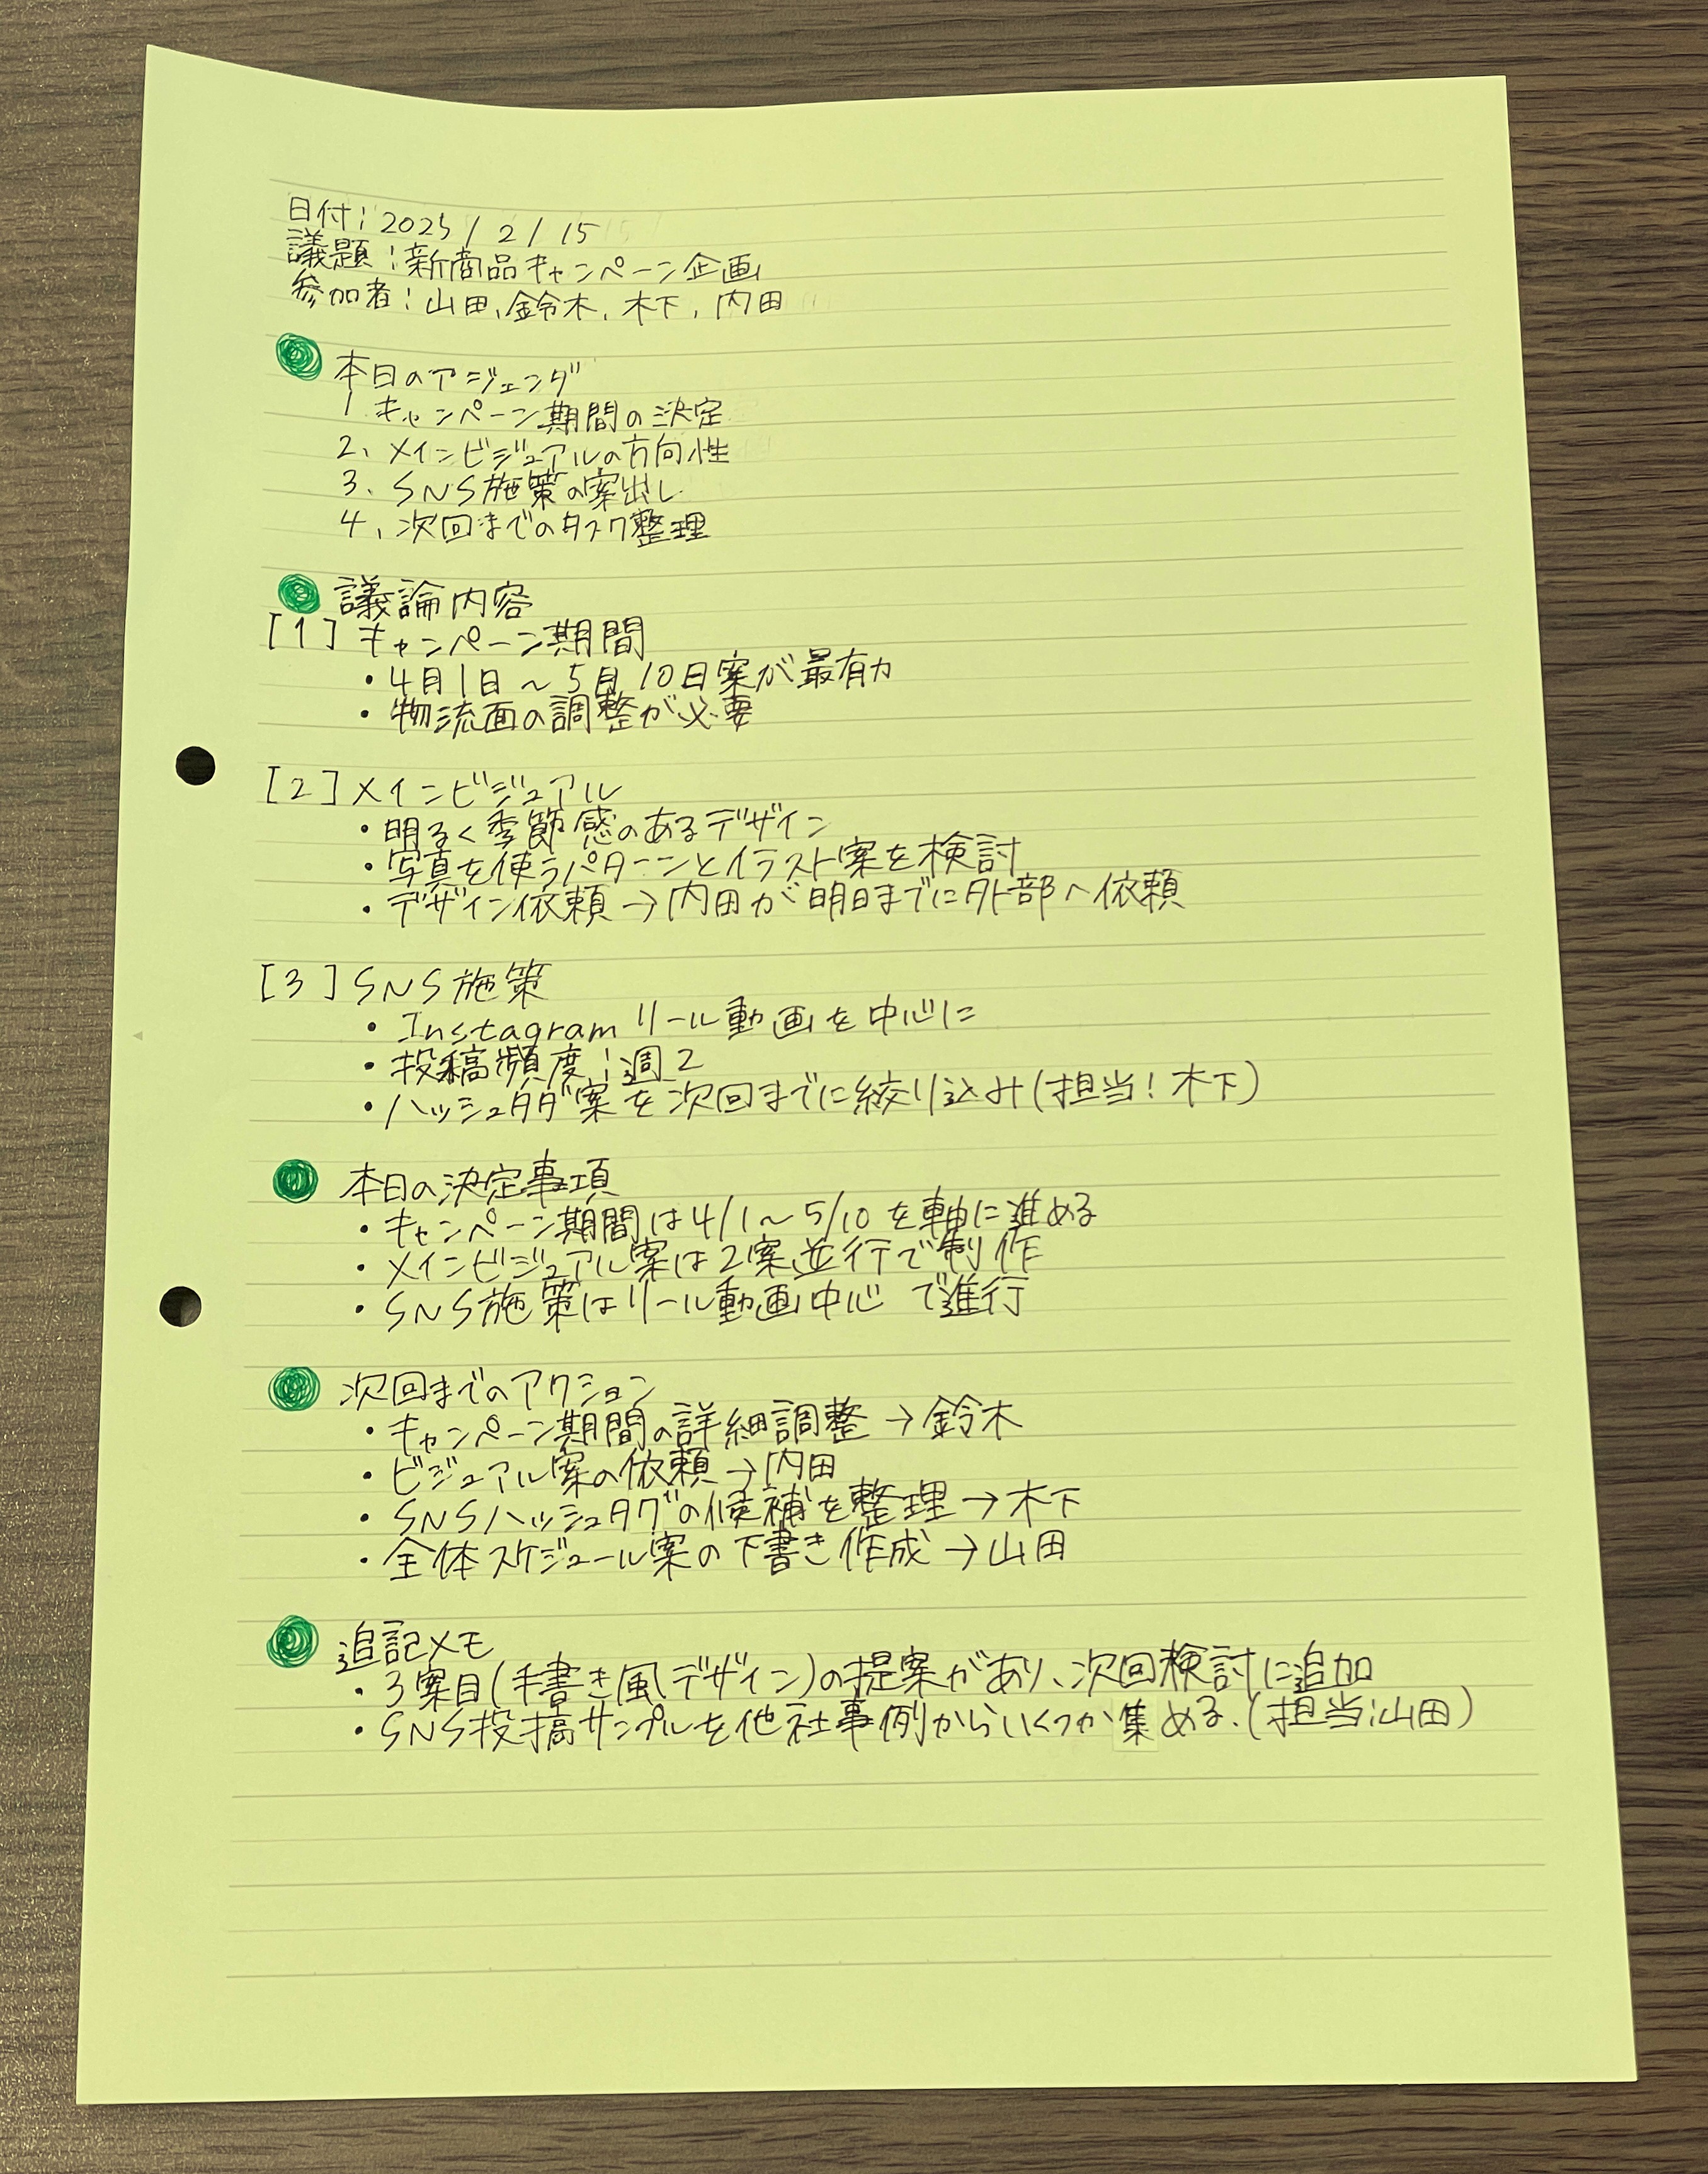 日付:2025/2/15
議題:新商品キャンペーン企画
参加者:山田、鈴木、木下、内田
本日のアジェンダ
1 キャンペーン期間の決定
2、メインビジュアルの方向性
3、SNS施策の案出し
4、次回までのタスク整理
議論内容
[1]キャンペーン期間
・4月1日～5月10日案が最有力
・物流面の調整が必要
[2]メインビジュアル
・明るく季節感のあるデザイン
・写真を使うパターンとイラスト案を検討
・デザイン依頼→内田が明日までに外部へ依頼
[3]SNS施策
・Instagramリール動画を中心に
・投稿頻度:週2
・ハッシュタグ案を次回までに絞り込み(担当:木下)
本日の決定事項
・キャンペーン期間は4/1～5/10を軸に進める
・メインビジュアル案は2案並行で制作
・SNS施策はリール動画中心で進行
次回までのアクション
・キャンペーン期間の詳細調整→鈴木
・ビジュアル案の依頼→内田
・SNSハッシュタグの候補を整理→木下
・全体スケジュール案の下書き作成→山田
追記メモ
・3案目(手書き風デザイン)の提案があり、次回検討に追加
・SNS投稿サンプルを他社事例からいくつか集める.(担当:山田)